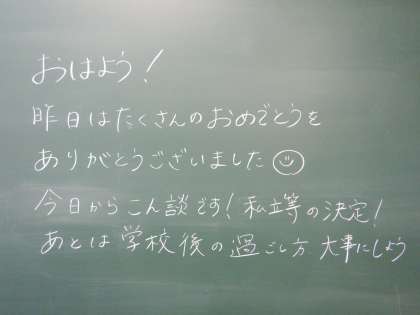 おはよう！
昨日はたくさんのおめでとうを
ありがとうございました
今日からこん談です！私立等の決定！
あとは学校後の過ごし方 大事にしよう